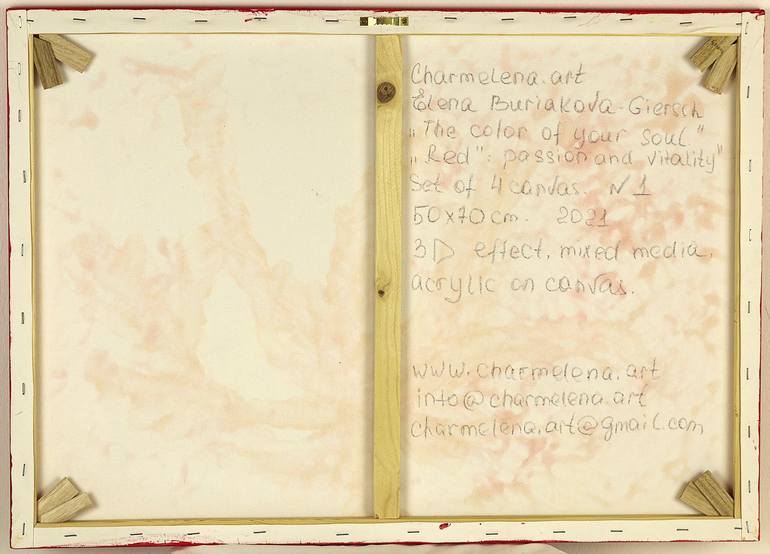 Charmelena.art
Elena Buriakova-Giersch
„The color of your soul"
„Red": passion and vitality"
Set of 4 canvas. N 1
50x70 cm. 2021
3D effect, mixed media,
acrylic on canvas.
www.charmelena.art
info@charmelena.art
charmelena.art@gmail.com